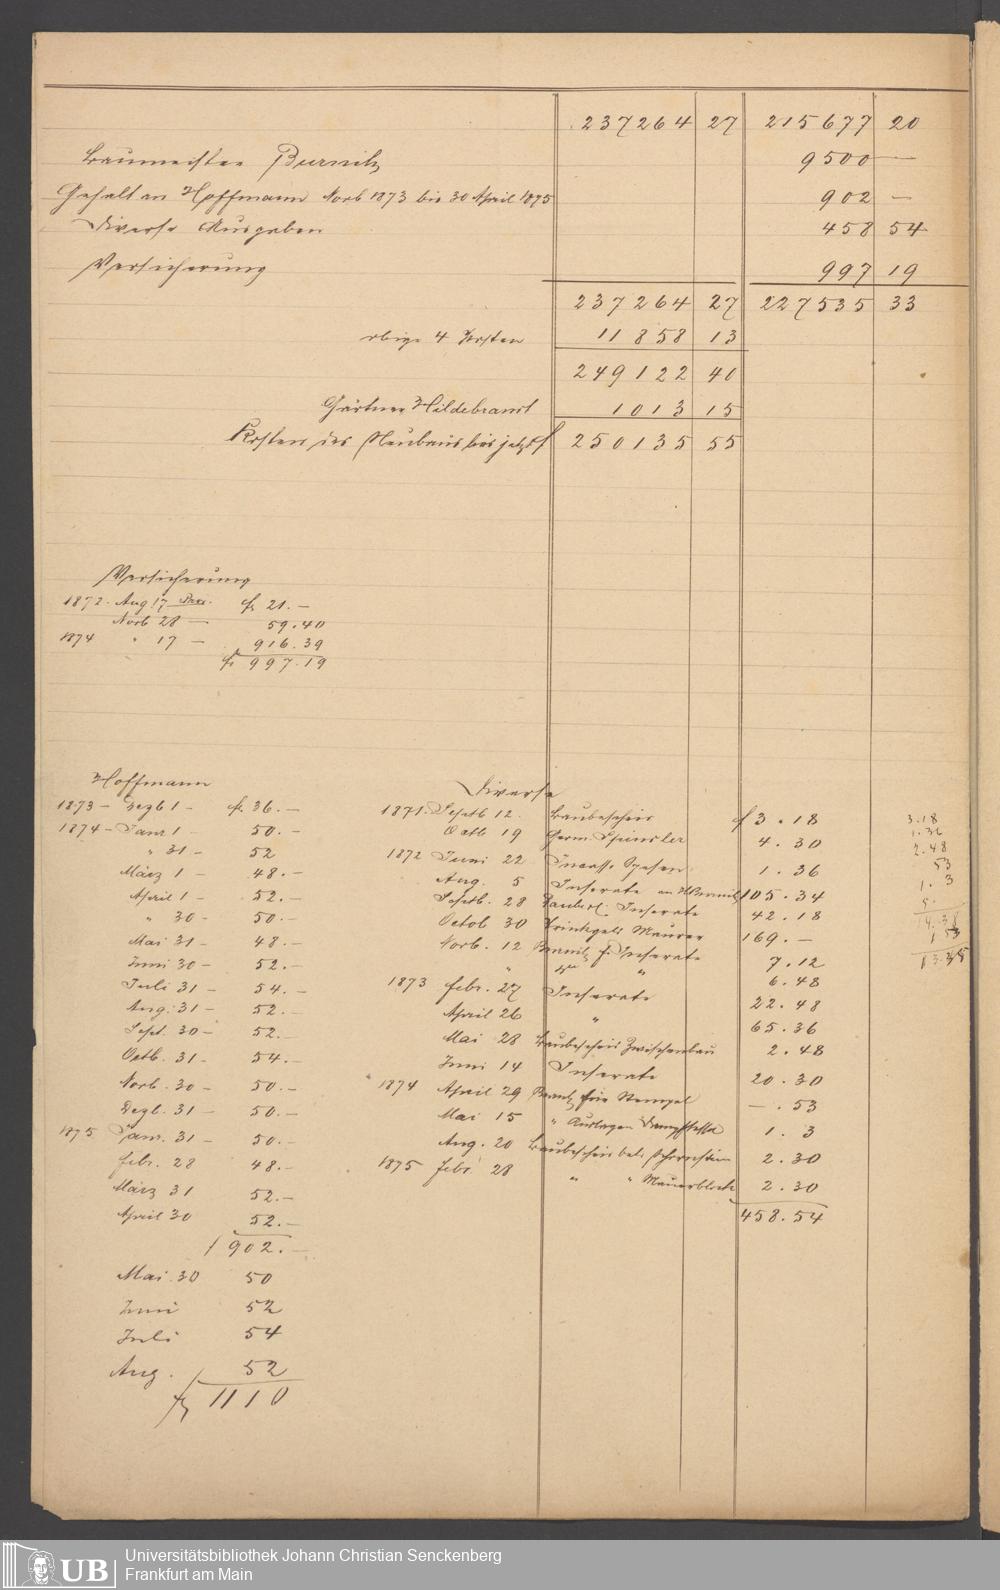 237264 27 215677 20
Baumeister Burnitz 9500 —
Gehalt an Hoffmann Novb 1873 bis 30 April 1875 902 —
Diverse Ausgaben 458 54
Versicherung 997 19
237264 27 227535 33
obige 4 Posten 11858 13
249122 40
Gärtner Hildebrandt 1013 15
Kosten des Neubaus bis jetzt f 250135 55
Versicherung
1872. Aug 17 f 21. —
Novb 28 — 59.40
1874 " 17 — 916.39
f 997.19
Hoffmann
1873 — Dezb 1 — f. 36. —
1874 — Janr 1 — 50. —
" 31 — 52
März 1 — 48. —
April 1 — 52. —
" 30 — 50. —
Mai 31 — 48. —
Juni 30 — 52. —
Juli 31 — 54. —
Aug. 31 — 52. —
Sept. 30 — 52. —
Octb. 31 — 54. —
Novb. 30 — 50. —
Dezb. 31 — 50. —
1875 Janr. 31 — 50. —
febr. 28 48. —
März 31 52. —
April 30 52. —
f 902. —
Mai 30 50
Juni 52
Juli 54
Aug. 52
f 1110
Diverse
1871. Septb 12. Baubescheid f 3.18
Octb 19 Herm. 4.30
1872 Juni 22 Incasso Spesen 1.36
Aug. 5 Inserate an Burnitz 105.34
Septb. 28 Inserate 42.18
Octob 30 Trinkgeld Maurer 169. —
Novb. 12 Burnitz f. Inserate 7.12
" " " 6.48
1873 febr. 27 Inserate 22.48
April 26 " 65.36
Mai 28 Baubescheid Zwischenbau 2.48
Juni 14 Inserate 20.30
1874 April 29 Burnitz für Stempel —.53
Mai 15 " Auslagen Dampfkessel 1.3
Aug. 20 Baubescheid betr. Schornstein 2.30
1875 febr 28 " " 2.30
458.54
3.18
1.36
2.48
53
1.3
UB
Universitätsbibliothek Johann Christian Senckenberg
Frankfurt am Main